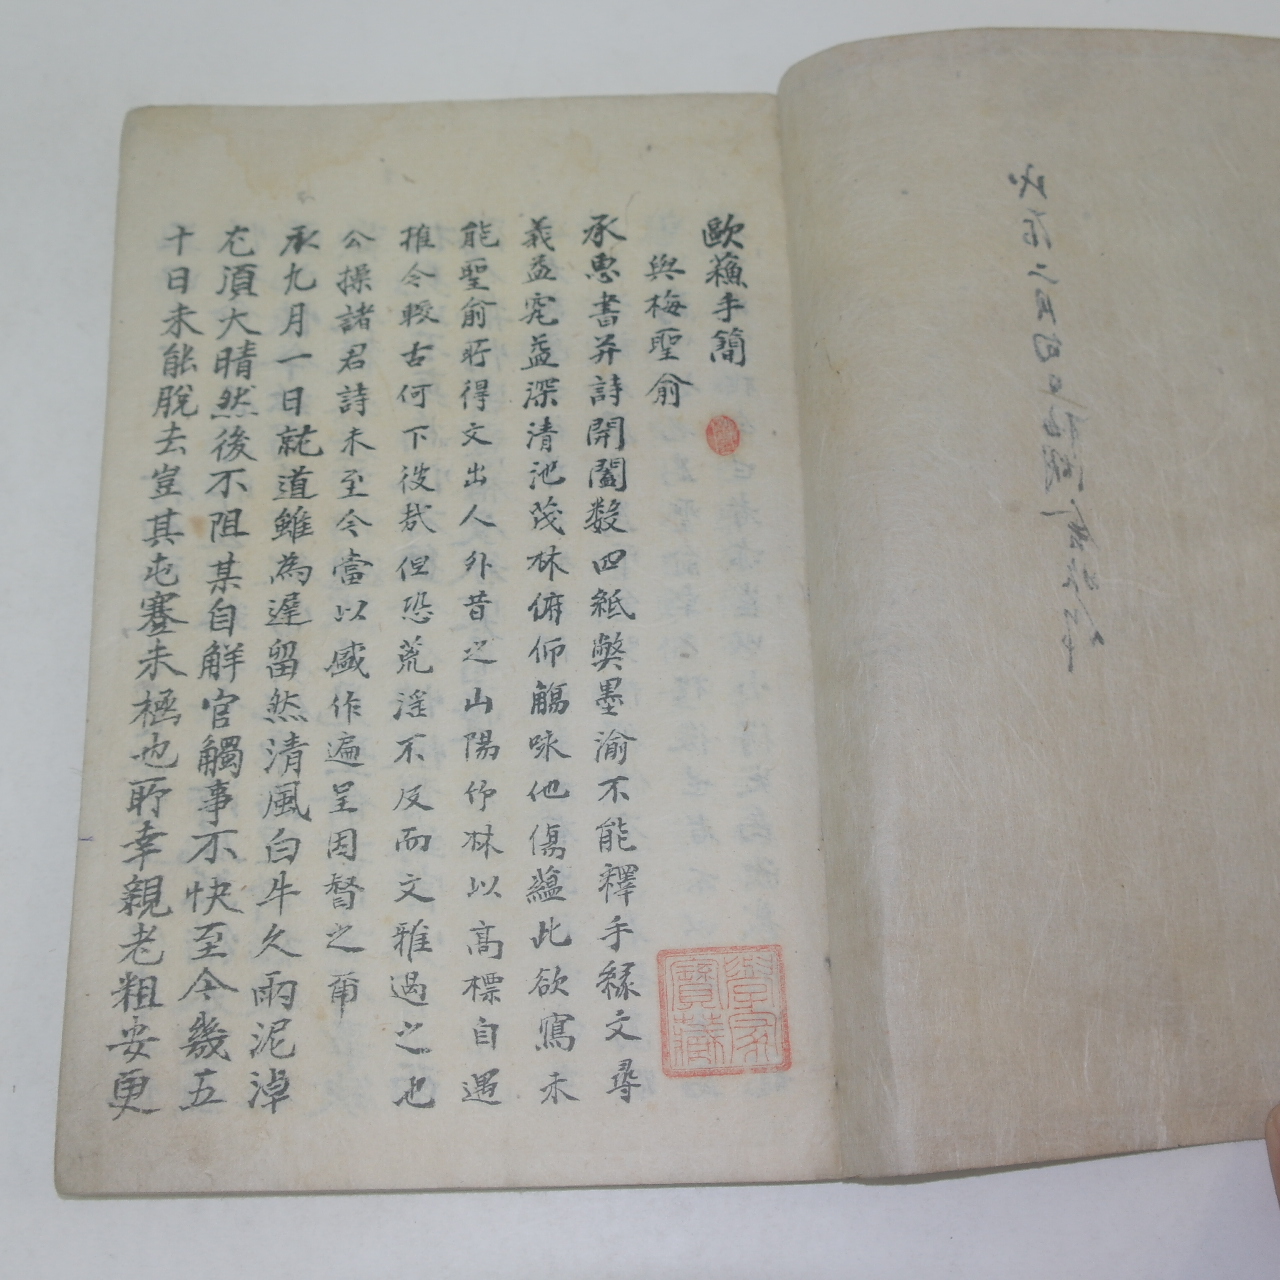 歐蘓手簡
與梅聖俞
承惠書并詩開闔数四紙獘墨渝不能釋手縁文尋
義益究益深清池茂林俯仰觴咏他傷蘊此欲寫未
能聖俞所得文出人外昔之山陽竹林以高標自遇
推今較古何下彼㢤但恐荒滛不及而文雅過之也
公操諸君詩未至今當以盛作遍呈因督之甫
承九月一日就道雖為遅留然清風白牛久雨泥淖
尤湏大晴然後不阻某自解官觸事不快至今幾五
十日未能脫去豈其屯蹇未極也所幸親老粗安更
家
寶藏